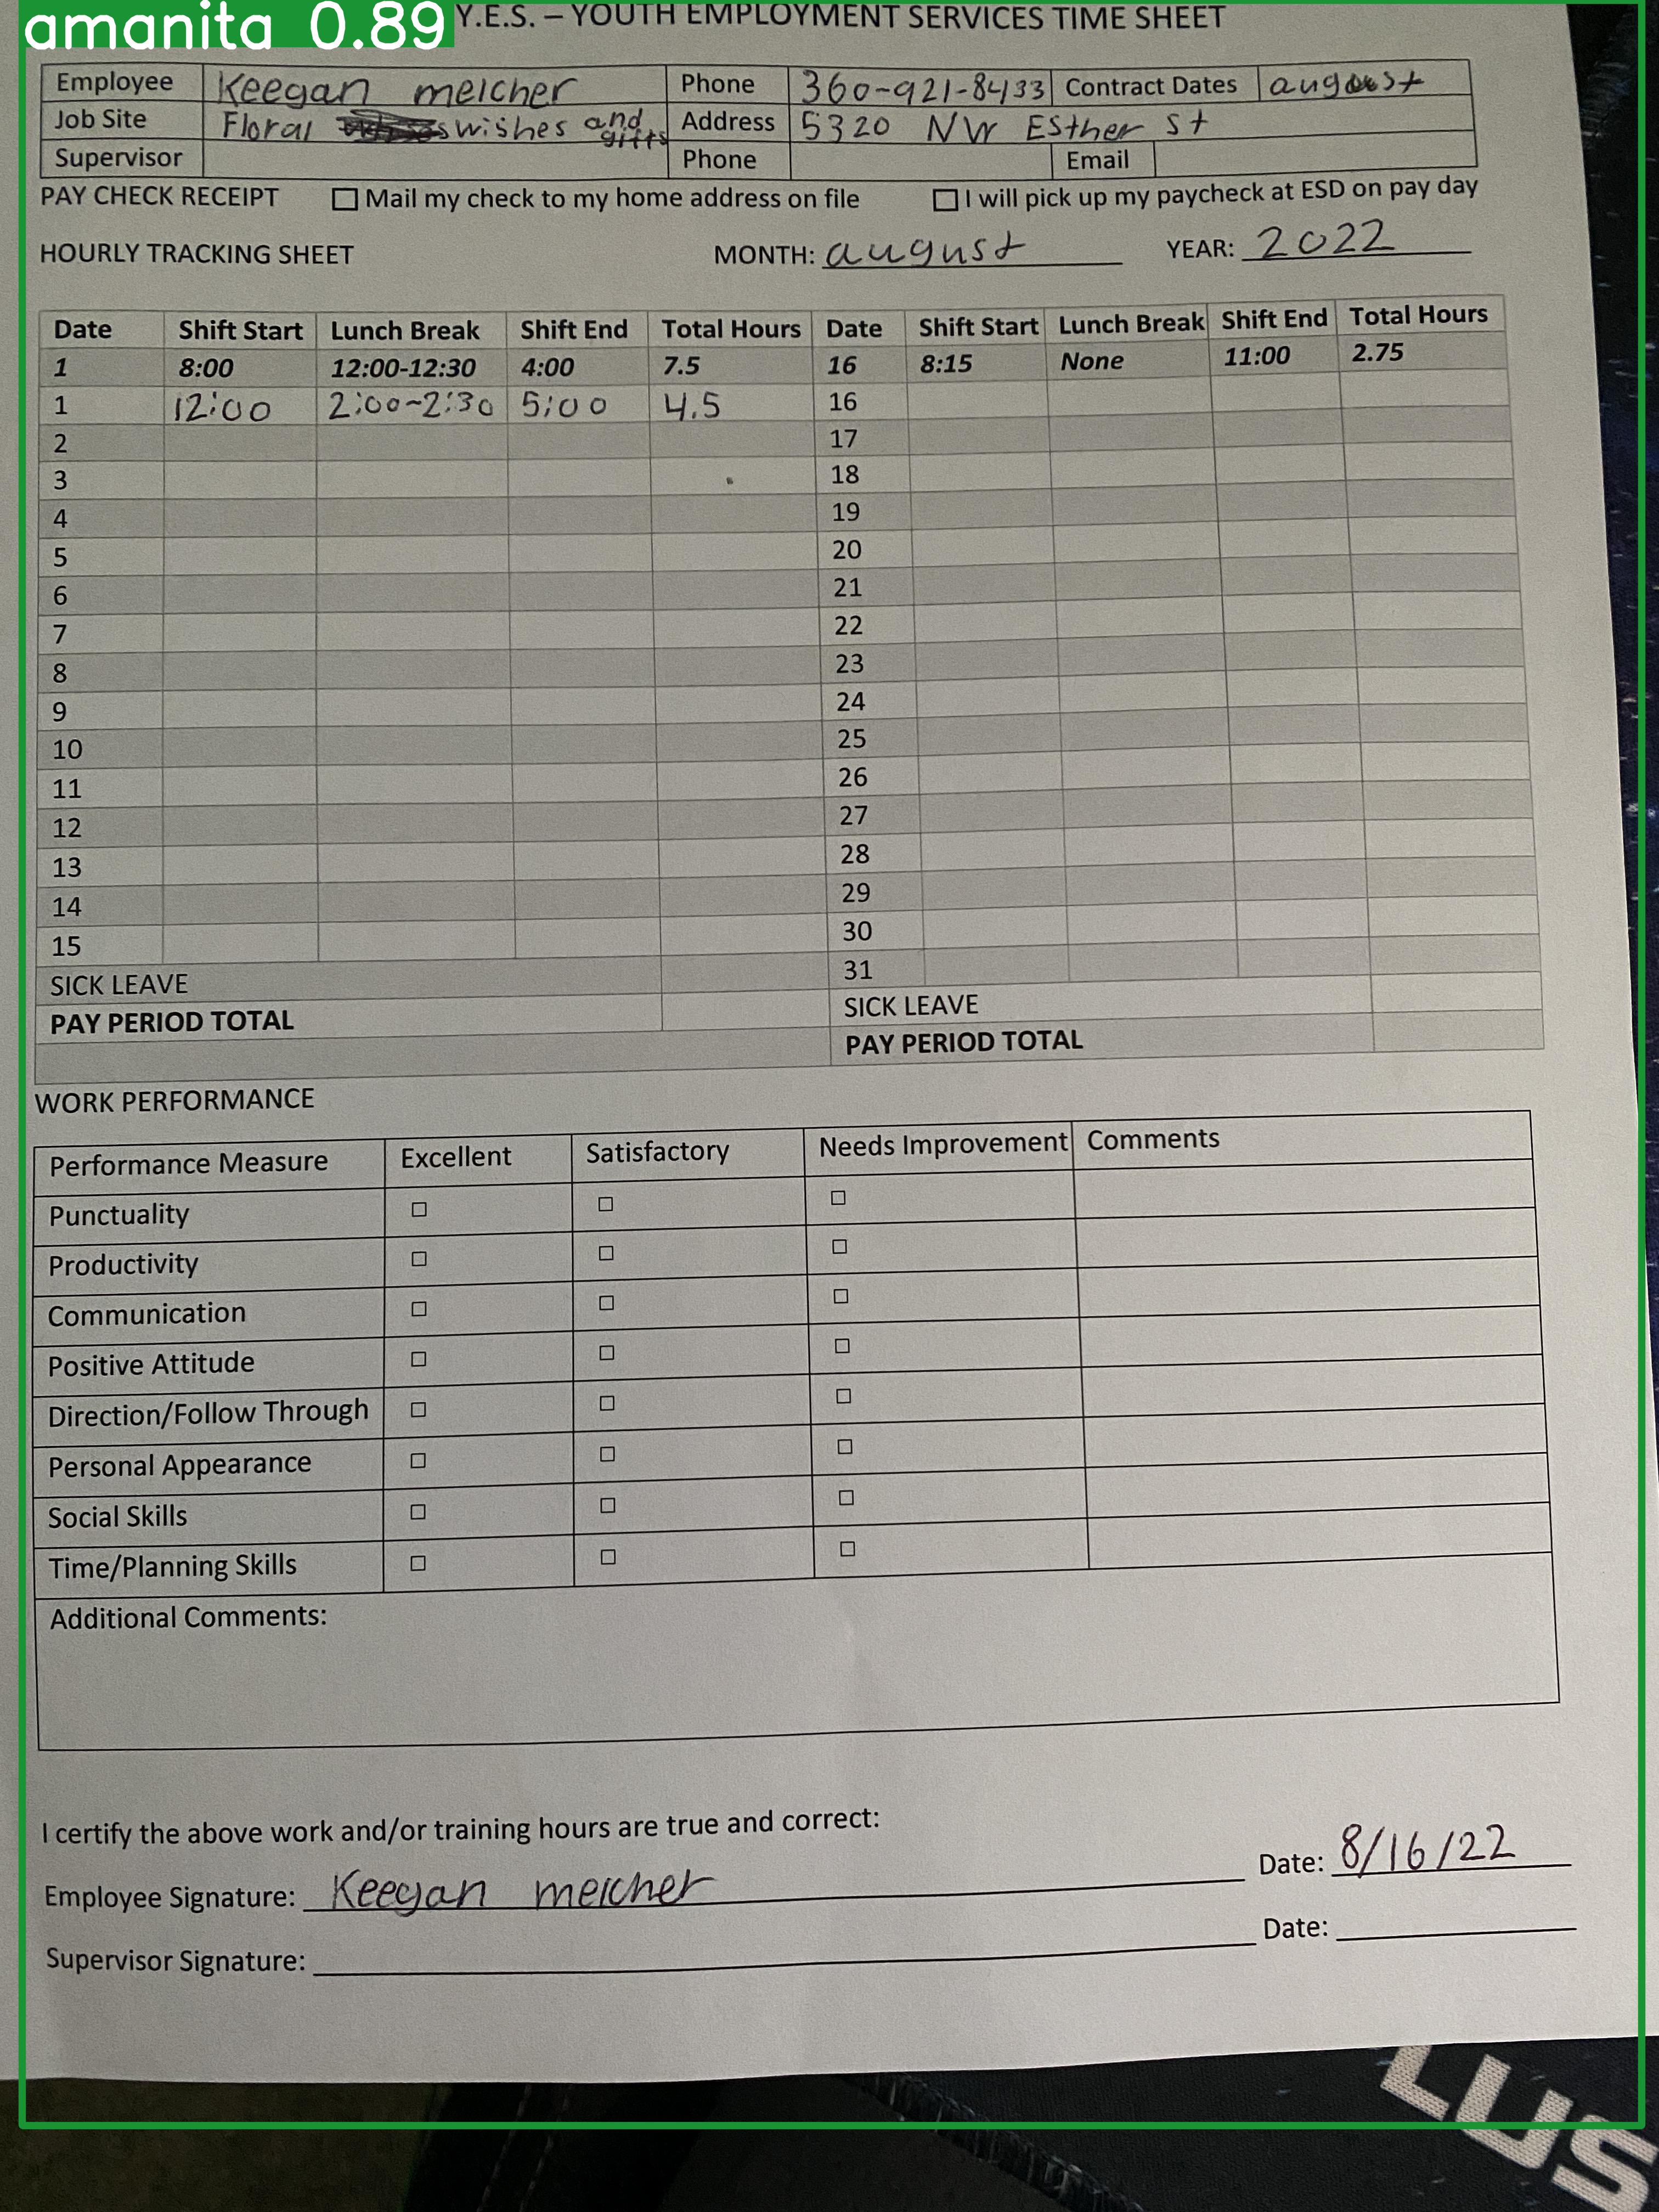 amanita 0.89
Y.E.S. – YOUTH EMPLOYMENT SERVICES TIME SHEET
Employee Keegan melcher Phone 360-921-8433 Contract Dates august
Job Site Floral swishes and gifts Address 5320 NW Esther st
Supervisor Phone Email
PAY CHECK RECEIPT ☐ Mail my check to my home address on file ☐ I will pick up my paycheck at ESD on pay day
HOURLY TRACKING SHEET MONTH: august YEAR: 2022
Date Shift Start Lunch Break Shift End Total Hours Date Shift Start Lunch Break Shift End Total Hours
1 8:00 12:00-12:30 4:00 7.5 16 8:15 None 11:00 2.75
1 12:00 2:00~2:30 5:00 4.5 16
2 17
3 18
4 19
5 20
6 21
7 22
8 23
9 24
10 25
11 26
12 27
13 28
14 29
15 30
SICK LEAVE 31
PAY PERIOD TOTAL SICK LEAVE
PAY PERIOD TOTAL
WORK PERFORMANCE
Performance Measure Excellent Satisfactory Needs Improvement Comments
Punctuality ☐ ☐ ☐
Productivity ☐ ☐ ☐
Communication ☐ ☐ ☐
Positive Attitude ☐ ☐ ☐
Direction/Follow Through ☐ ☐ ☐
Personal Appearance ☐ ☐ ☐
Social Skills ☐ ☐ ☐
Time/Planning Skills ☐ ☐ ☐
Additional Comments:
I certify the above work and/or training hours are true and correct:
Employee Signature: Keegan melcher Date: 8/16/22
Supervisor Signature: Date:
LUS